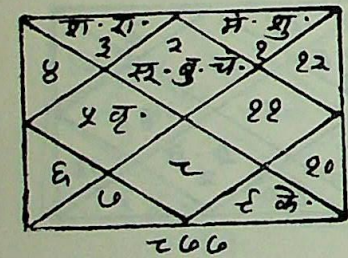 श· रा· मं· शु·
३ २ १
४ सू· बु· चं· १२
५ वृ· ११
६ ८ १०
७ ९ के·
८७७